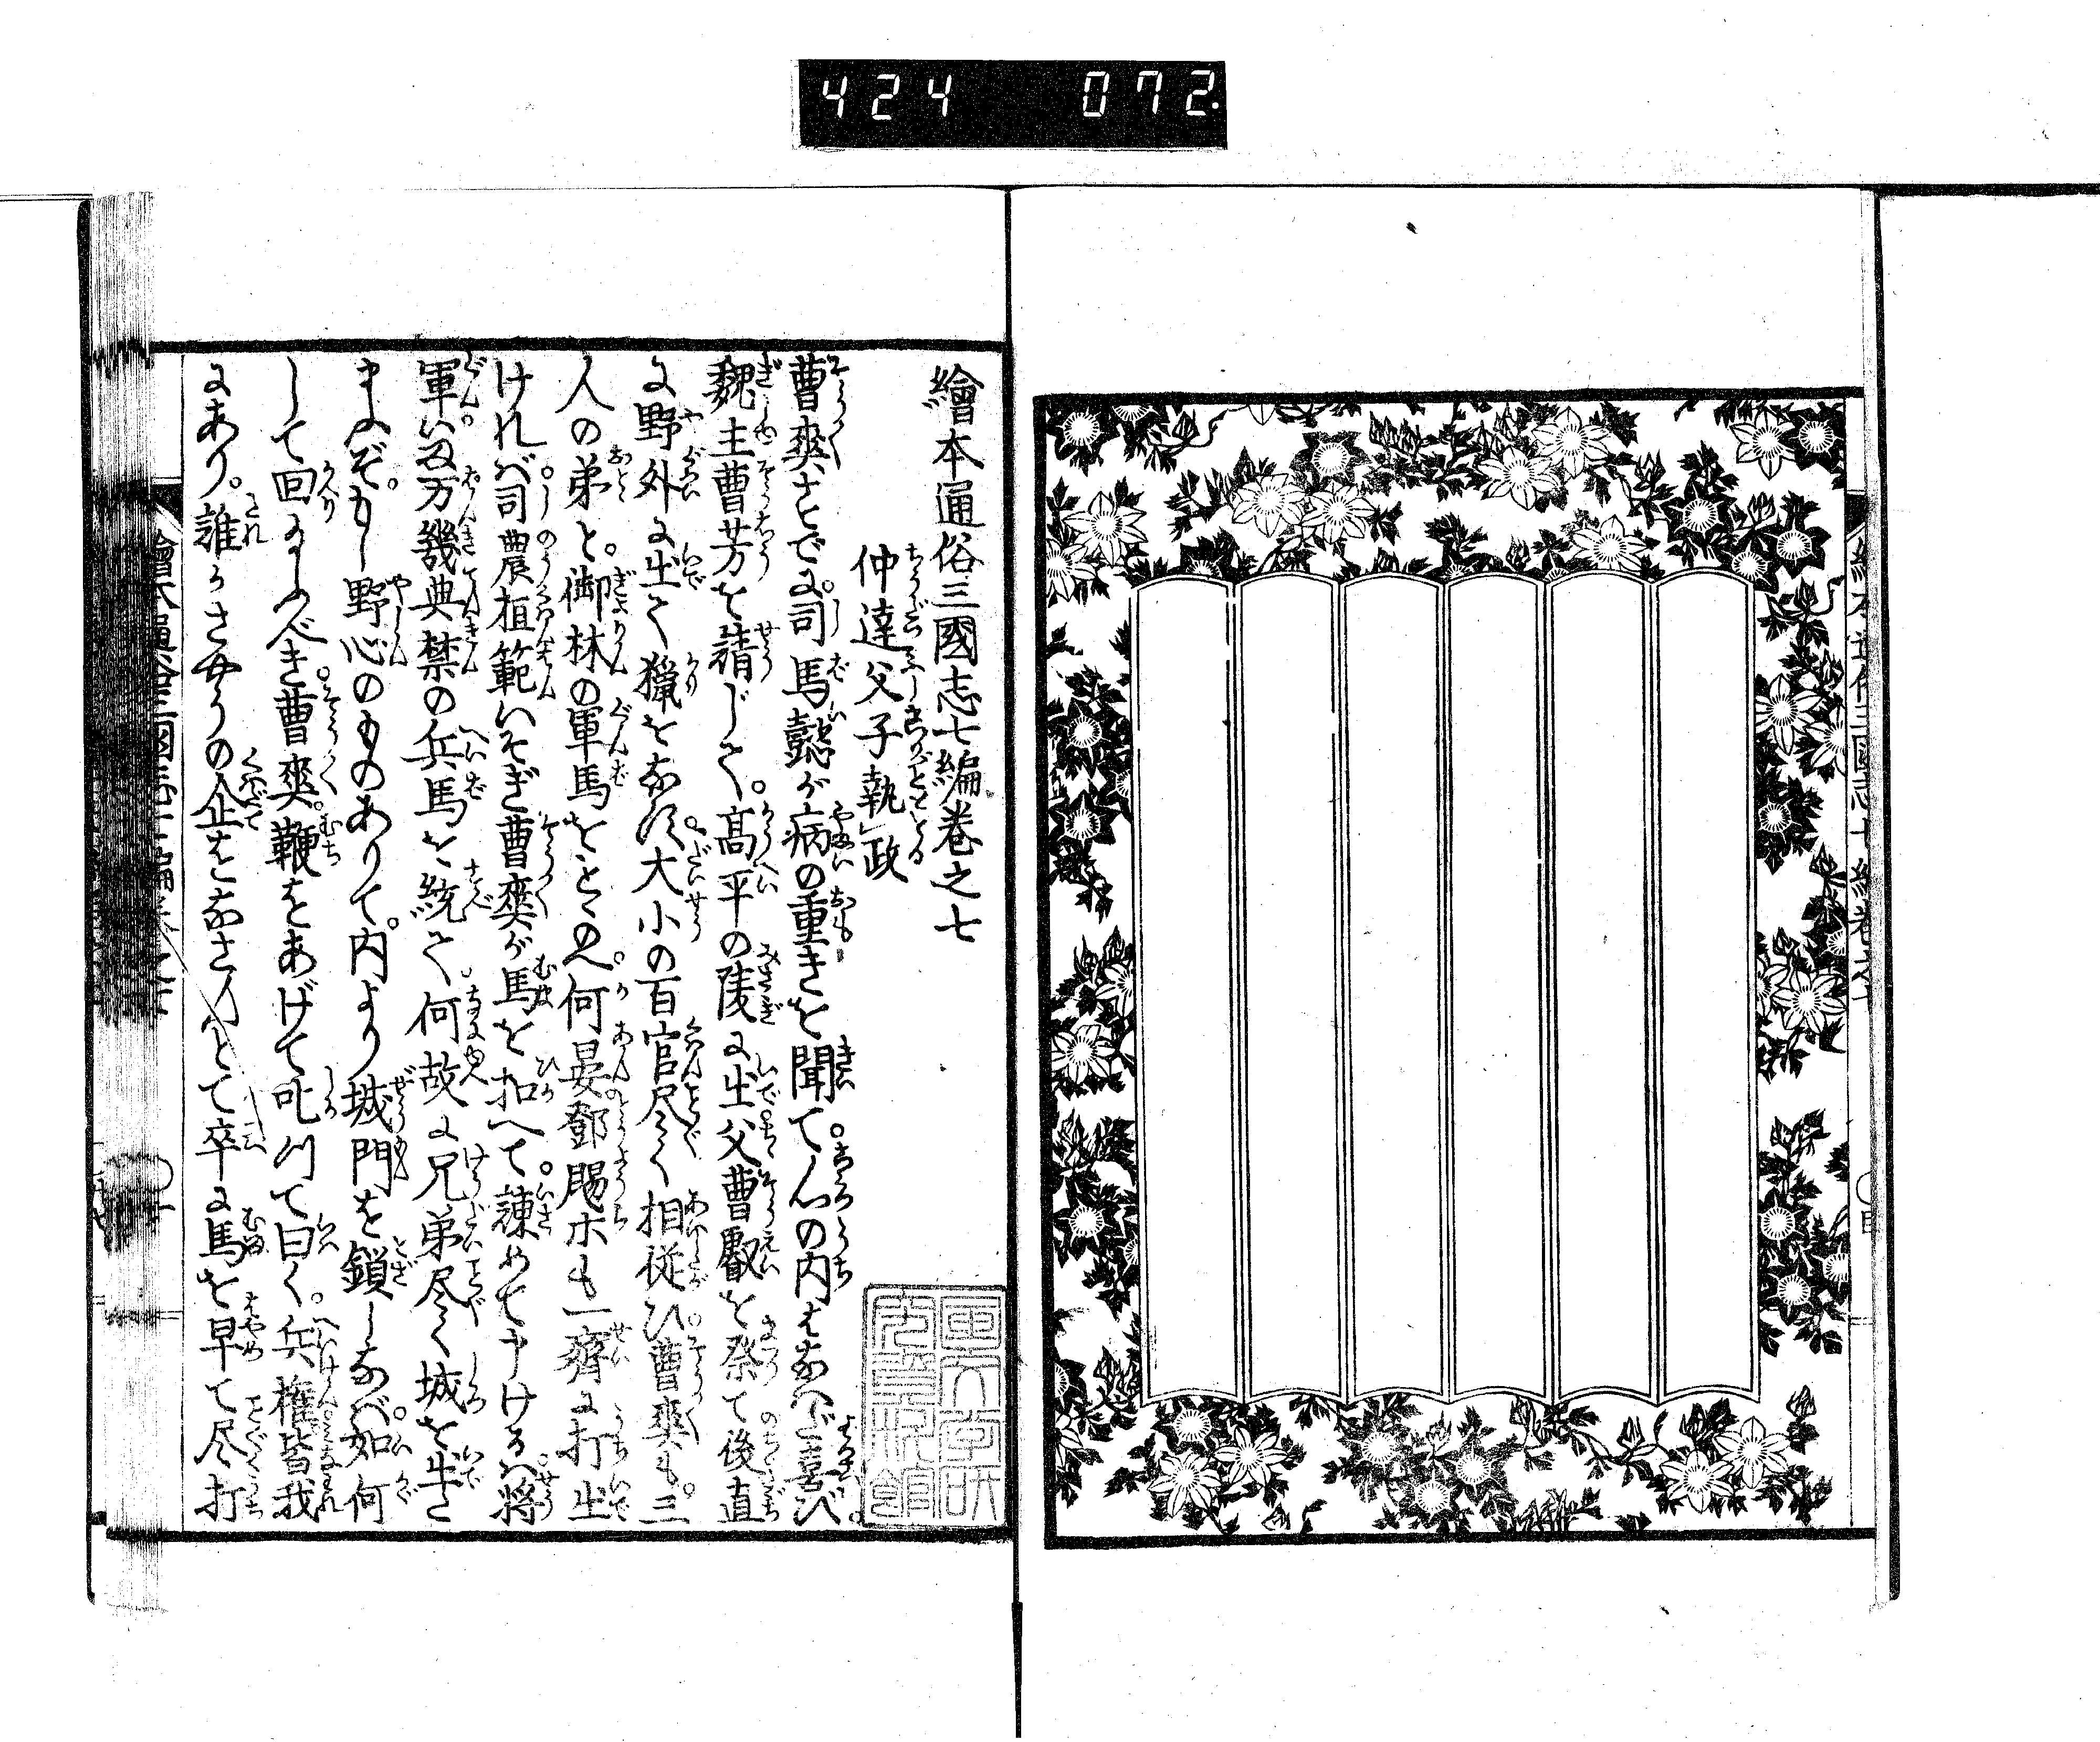 424 072
繪本通俗三國志七編巻之七
仲達父子執政
曹爽さとでに司馬懿が病の重きを聞て心の内はなはだ喜び
魏主曹芳を請じて。高平の陵に出父曹叡を祭て後直
に野外に出て獵をなす。大小の百官尽く相従ひ曹爽も。三
人の弟と。御林の軍馬をとゝのへ。何晏鄧颺ホも一齊に打出
ければ。司農桓範いそぎ曹爽が馬を扣へて。諫めて申けるハ。将
軍ハ万幾典禁の兵馬を統て。何故に兄弟尽く城を出て
野心のものありて。内より城門を鎖しなば。如何
して回るべき。曹爽。鞭をあげて叱りて曰く。兵権皆我
にあり。誰かさやうの企をなさんとて卒に馬を早て尽打